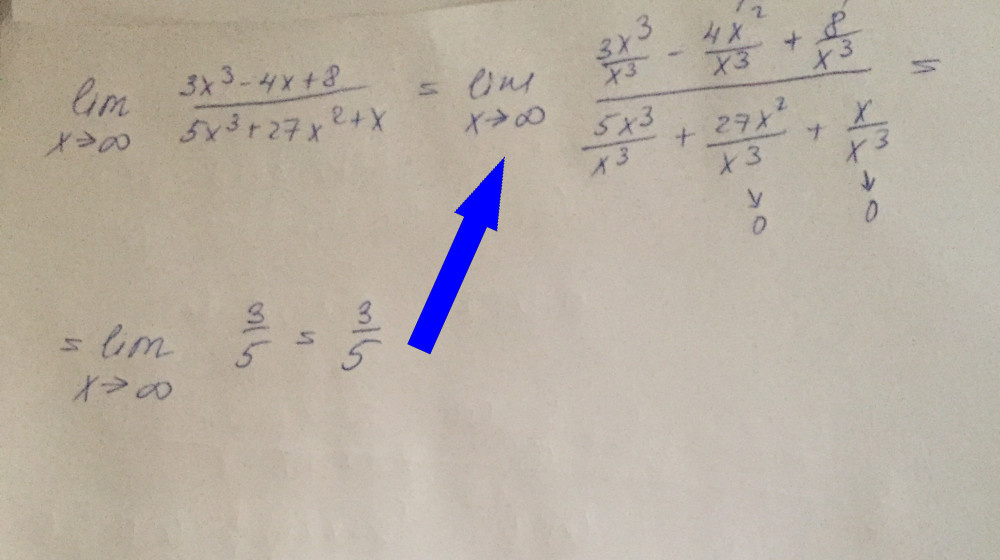 lim x→∞ (3x³ - 4x + 8)/(5x³ + 27x² + x) = lim x→∞ (3x³/x³ - 4x²/x³ + 8/x³)/(5x³/x³ + 27x²/x³ + x/x³) =
↓ ↓
0 0
= lim x→∞ 3/5 = 3/5